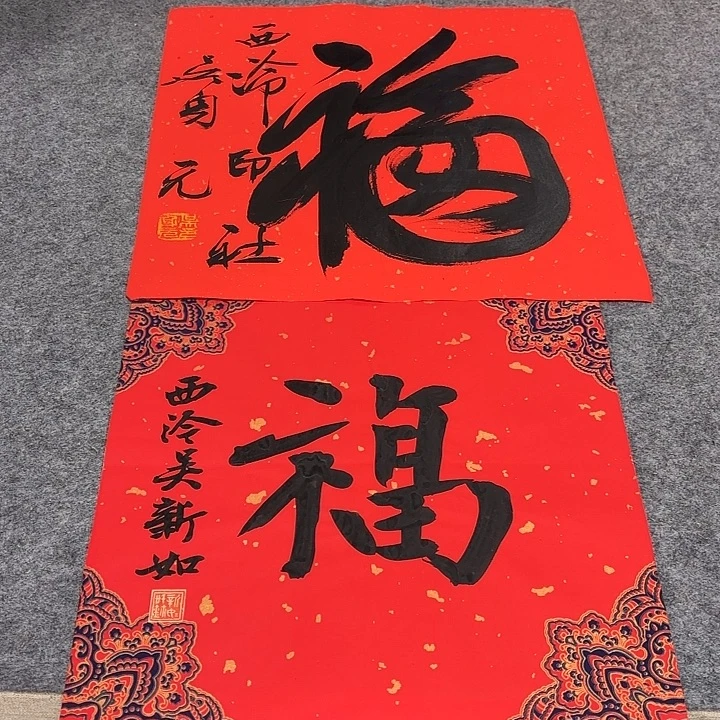 福
西泠印社
吴 元
福
西泠吴新如